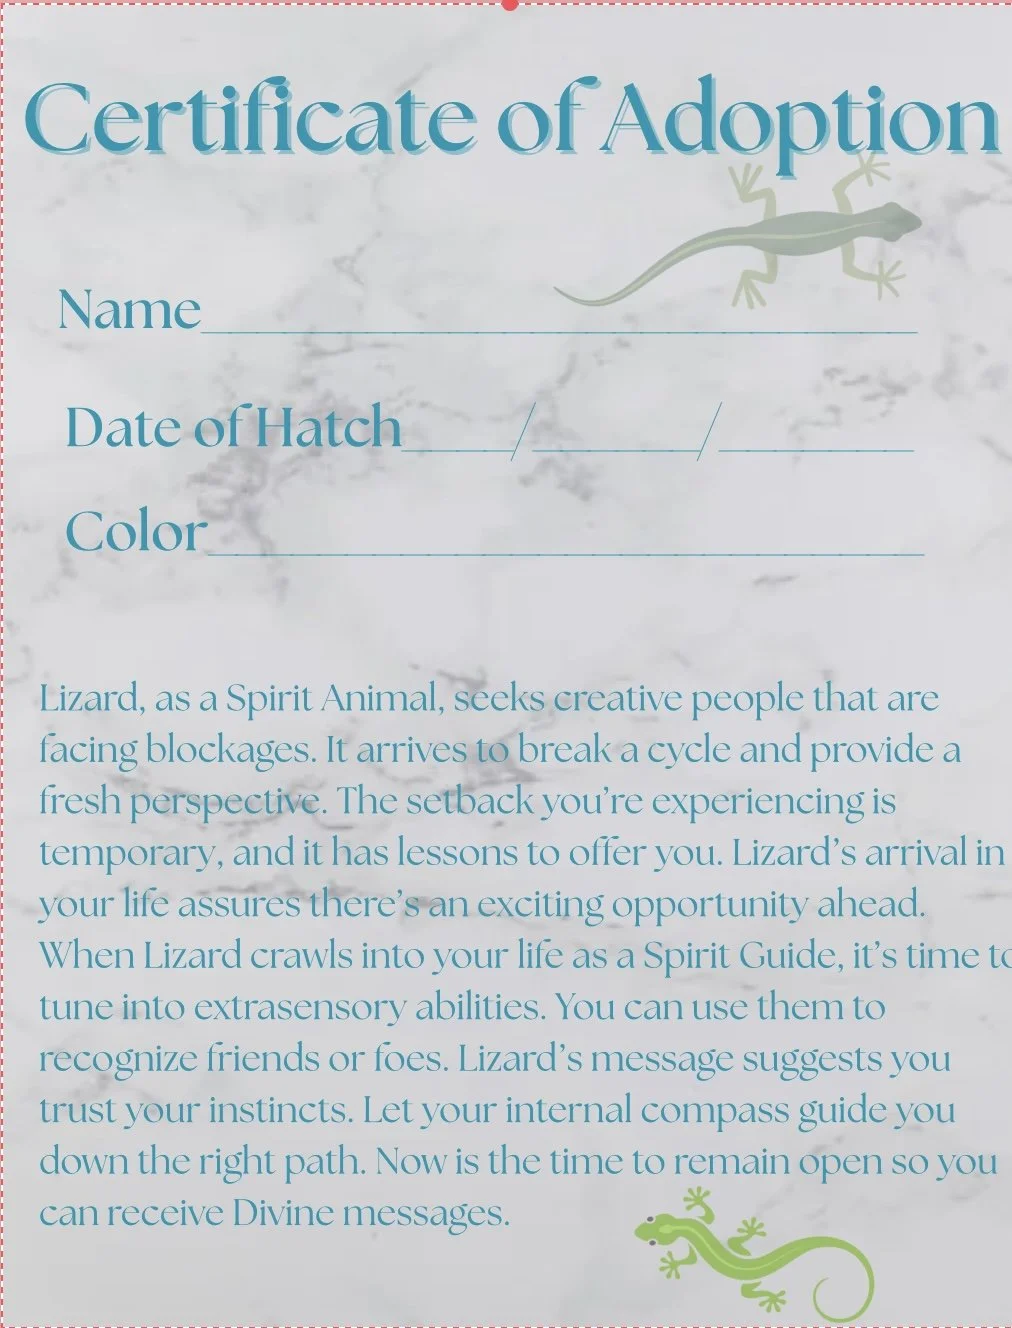 Certificate of Adoption
Name
Date of Hatch / /
Color
Lizard, as a Spirit Animal, seeks creative people that are
facing blockages. It arrives to break a cycle and provide a
fresh perspective. The setback you're experiencing is
temporary, and it has lessons to offer you. Lizard's arrival in
your life assures there's an exciting opportunity ahead.
When Lizard crawls into your life as a Spirit Guide, it's time to
tune into extrasensory abilities. You can use them to
recognize friends or foes. Lizard's message suggests you
trust your instincts. Let your internal compass guide you
down the right path. Now is the time to remain open so you
can receive Divine messages.